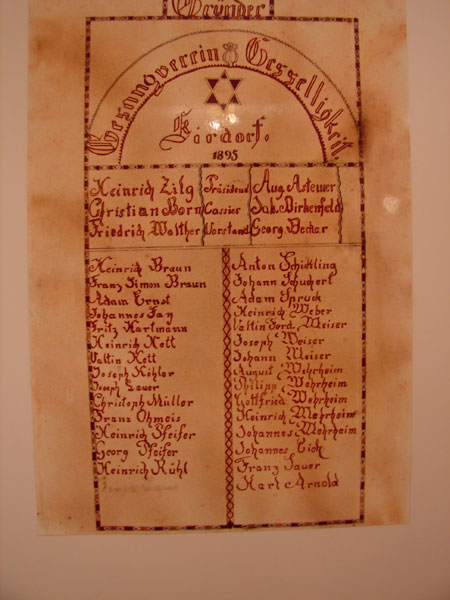 Gründer
Gesangverein Gesselligkeit.
Kirdorf.
1895
Heinrich Zilg Präsident Aug. Astemer
Christian Born Cassier Jak. Birkenfeld
Friedrich Walther Vorstand Georg Becker
Heinrich Braun
Franz Simon Braun
Adam Ernst
Johannes Fan
Fritz Hartmann
Heinrich Hett
Valtin Hett
Joseph Köhler
Joseph Lauer
Christoph Müller
Franz Ohmeis
Heinrich Pfeifer
Georg Pfeifer
Heinrich Rühl
Anton Schickling
Johann Schuchert
Adam Spruck
Heinrich Weber
Valtin Ferd. Meiser
Joseph Weiser
Johann Meiser
August Wehrheim
Philipp Wehrheim
Gottfried Wehrheim
Heinrich Wehrheim
Johannes Wehrheim
Johannes Eich
Franz Sauer
Karl Arnold